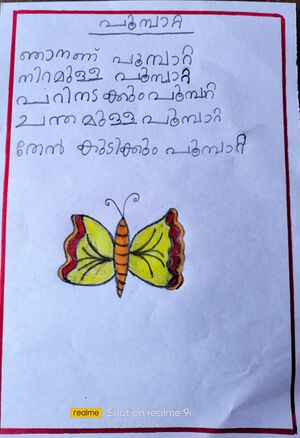 പൂമ്പാറ്റ
ഞാനണ് പൂമ്പാറ്റ
നിറമുള്ള പൂമ്പാറ്റ
പറിനടക്കുംപൂമ്പറ്റ
ചന്തമുള്ളപൂമ്പാറ്റ
തേൻ കുടിക്കും പൂമ്പാറ്റ
realme Shot on realme 9i